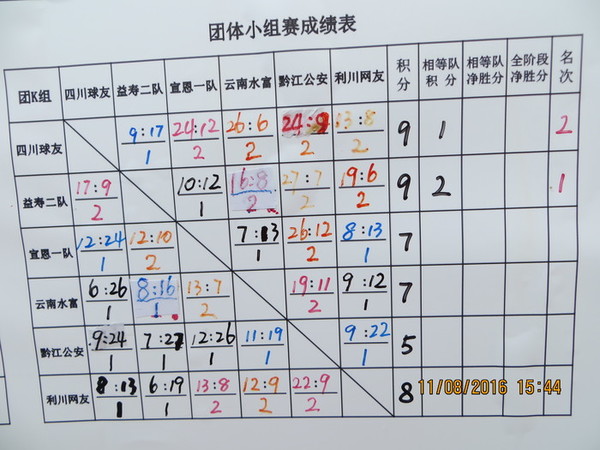 团体小组赛成绩表
团K组 四川球友 益寿二队 宣恩一队 云南水富 黔江公安 利川网友 积分 相等队积分 相等队净胜分 全阶段净胜分 名次
四川球友 9:17 24:12 26:6 24:9 13:8 9 1 2
1 2 2 2 2
益寿二队 17:9 10:12 16:8 27:7 19:6 9 2 1
2 1 2 2 2
宣恩一队 12:24 12:10 7:13 26:12 8:13 7
1 2 1 2 1
云南水富 6:26 8:16 13:7 19:11 9:12 7
1 1 2 2 1
黔江公安 9:24 7:27 12:26 11:19 9:22 5
1 1 1 1 1
利川网友 8:13 6:19 13:8 12:9 22:9 8
1 1 2 2 2
11/08/2016 15:44